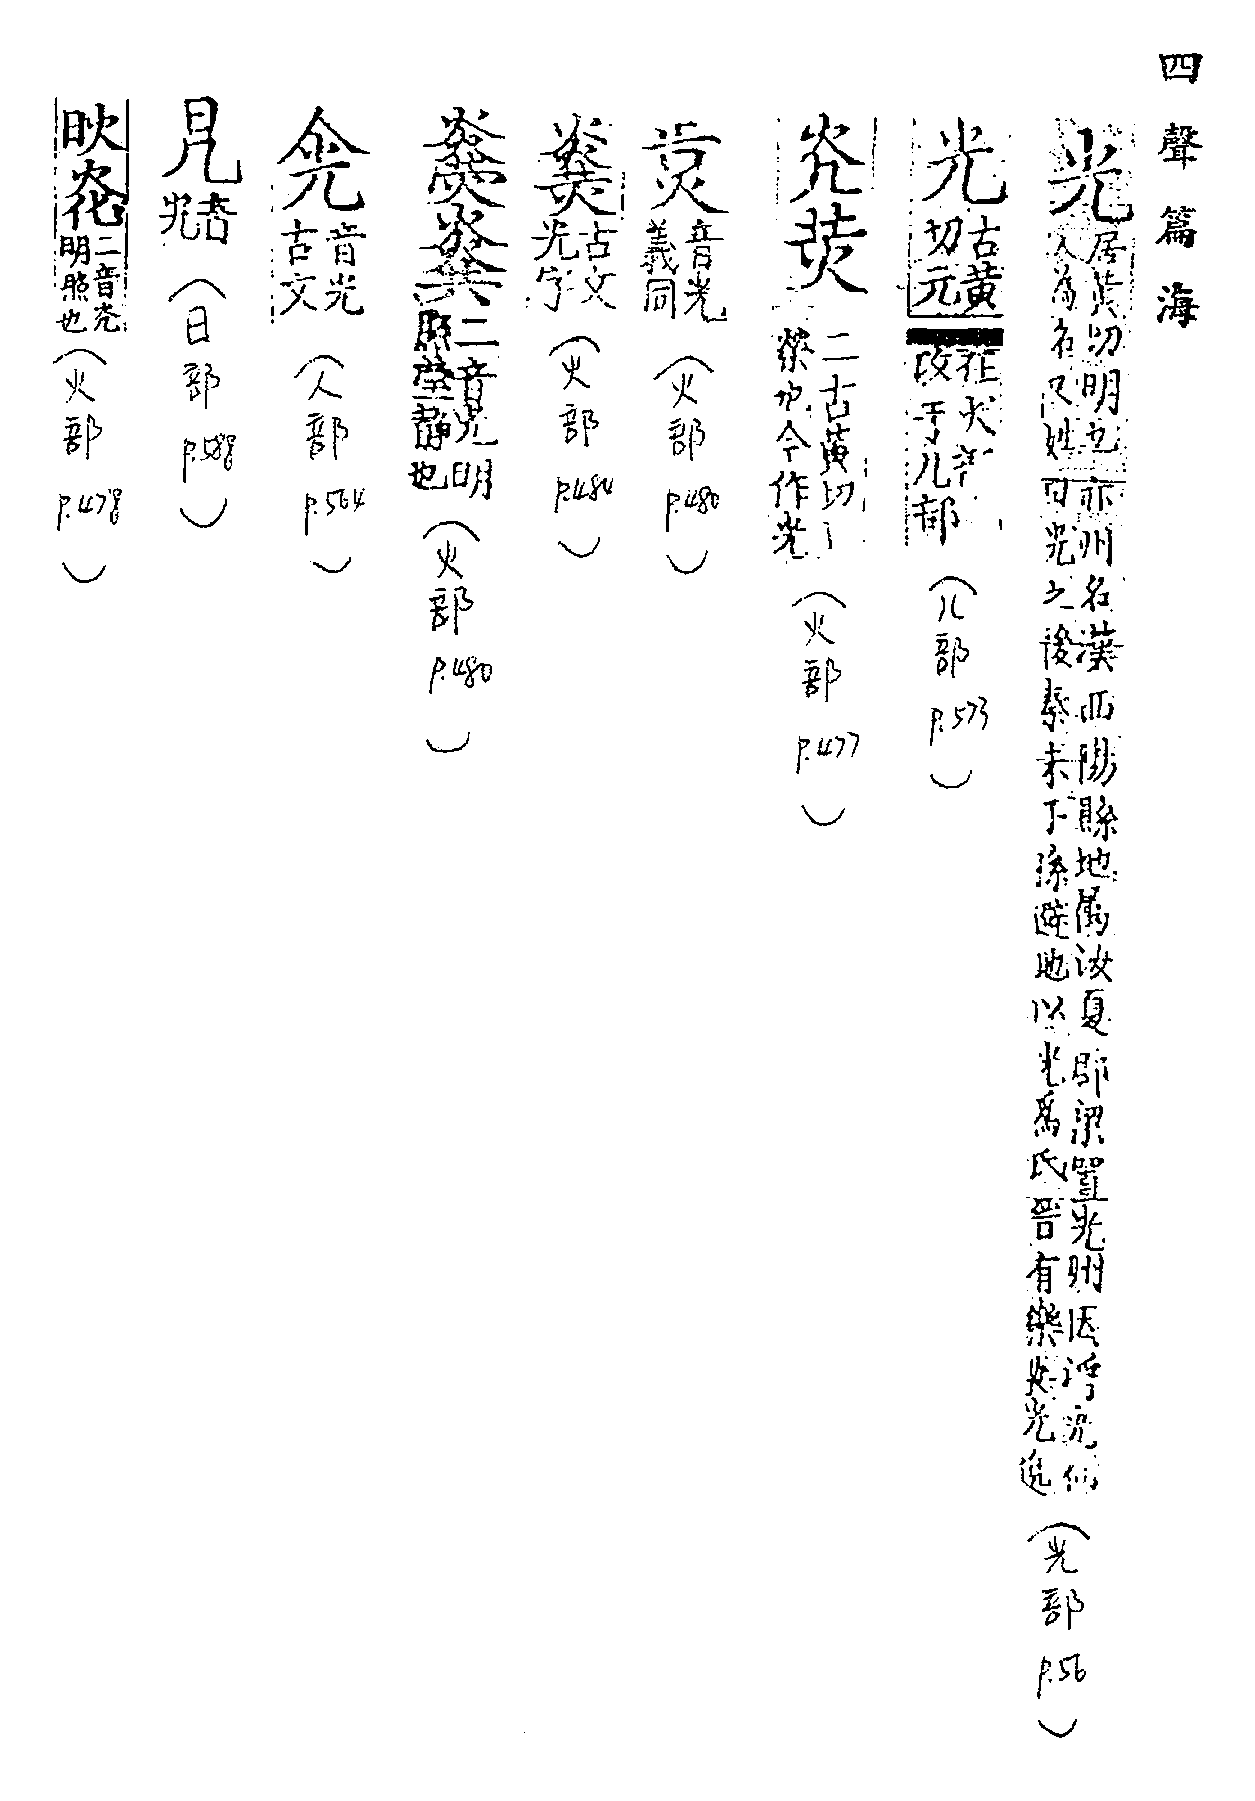 四聲篇海
光 居黃切明也亦州名漢西陽縣地屬汝夏郡梁置光州因浮光
人為名又姓曰光之後秦末下孫避地以光為氏晉有樂安光逸
（光部 P.56）
光 古黃切元
在火部改于儿部
（儿部 P.573）
炗 二古黃切
榮也今作光
（火部 P.477）
音光義同
（火部 P.480）
古文光字
（火部 P.484）
二音光明照瑩靜也
（火部 P.480）
音光古文
（人部 P.564）
音光
（日部 P.588）
二音光明照也
（火部 P.478）